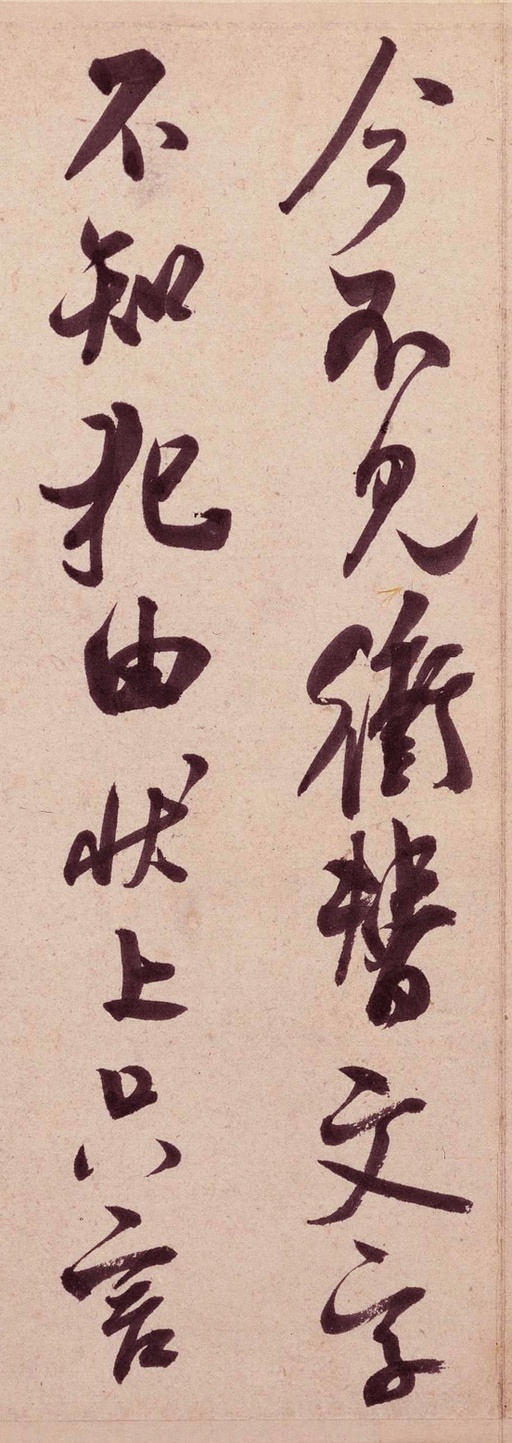 今不見衝替文字
不知犯由狀上只言